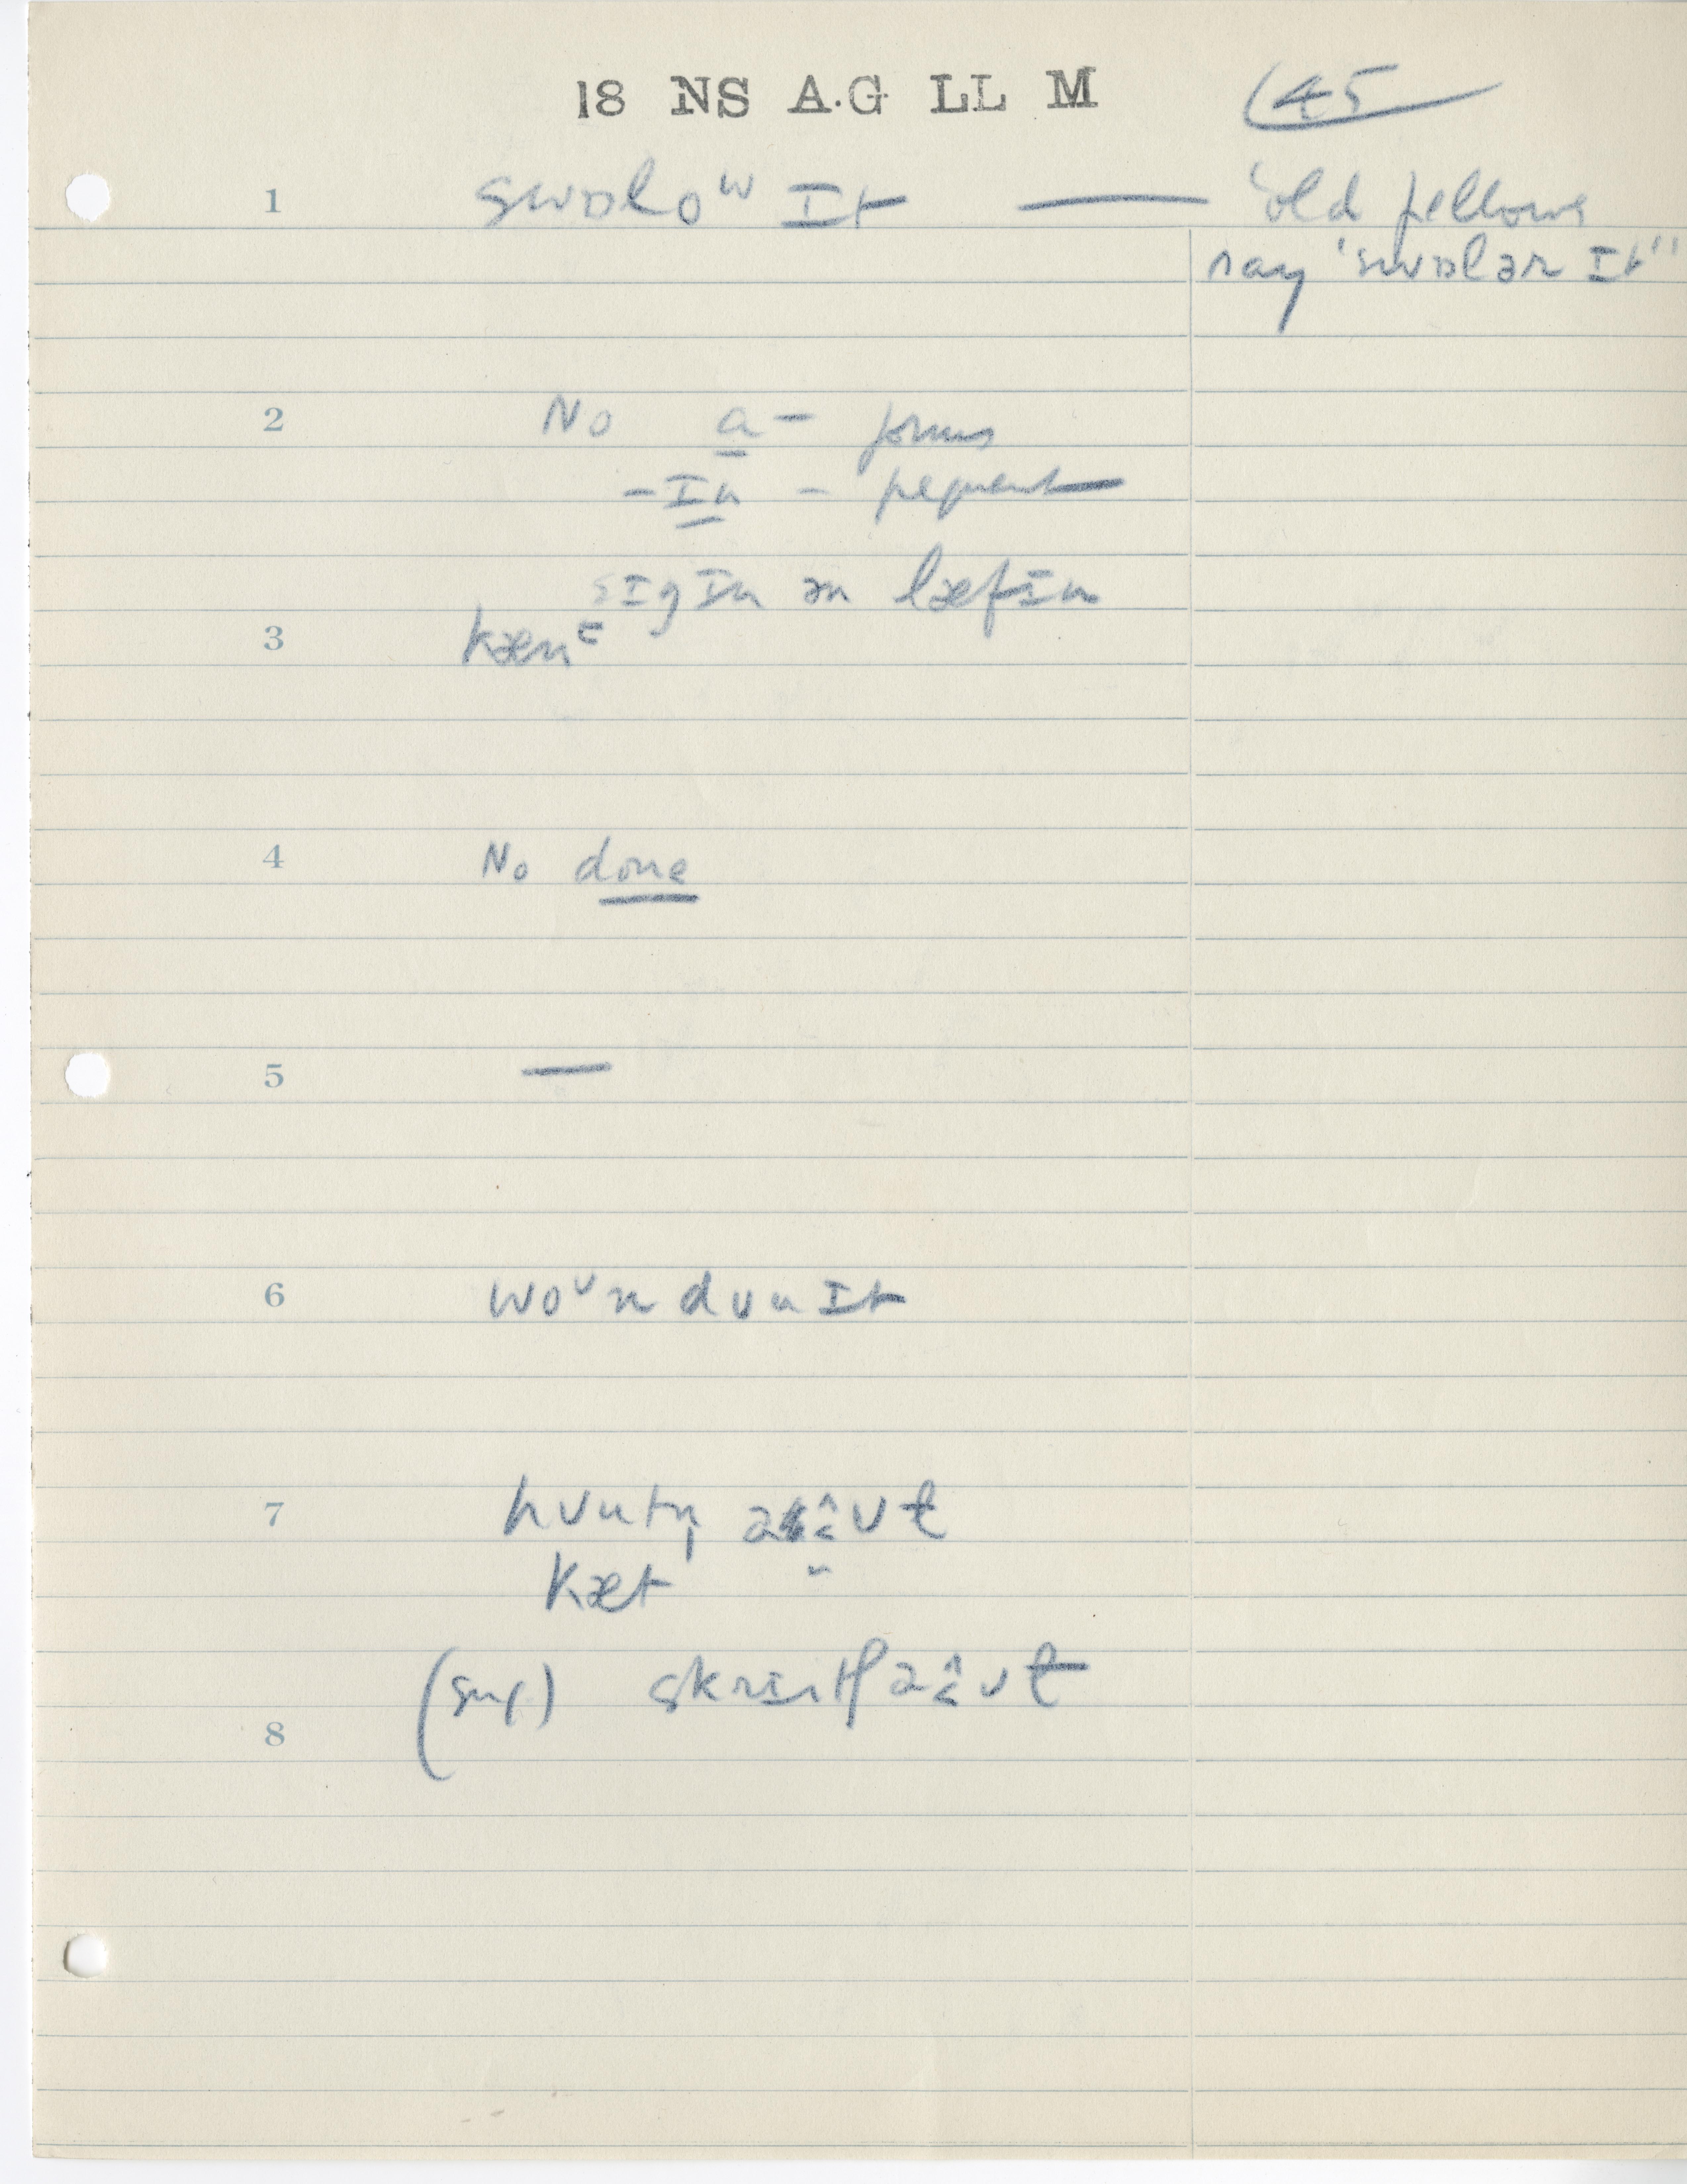 18 NS A.G LL M 45
1 swɒloʷ ɪt — 'old fellows
say 'swɒlər ɪt''
2 No a- forms
-ɪn - frequent
sɪgɪn ən læfɪn
3 kæn
4 No done
5 —
6 woᵘn duu ɪt
7 huutn̩
kæt "
8